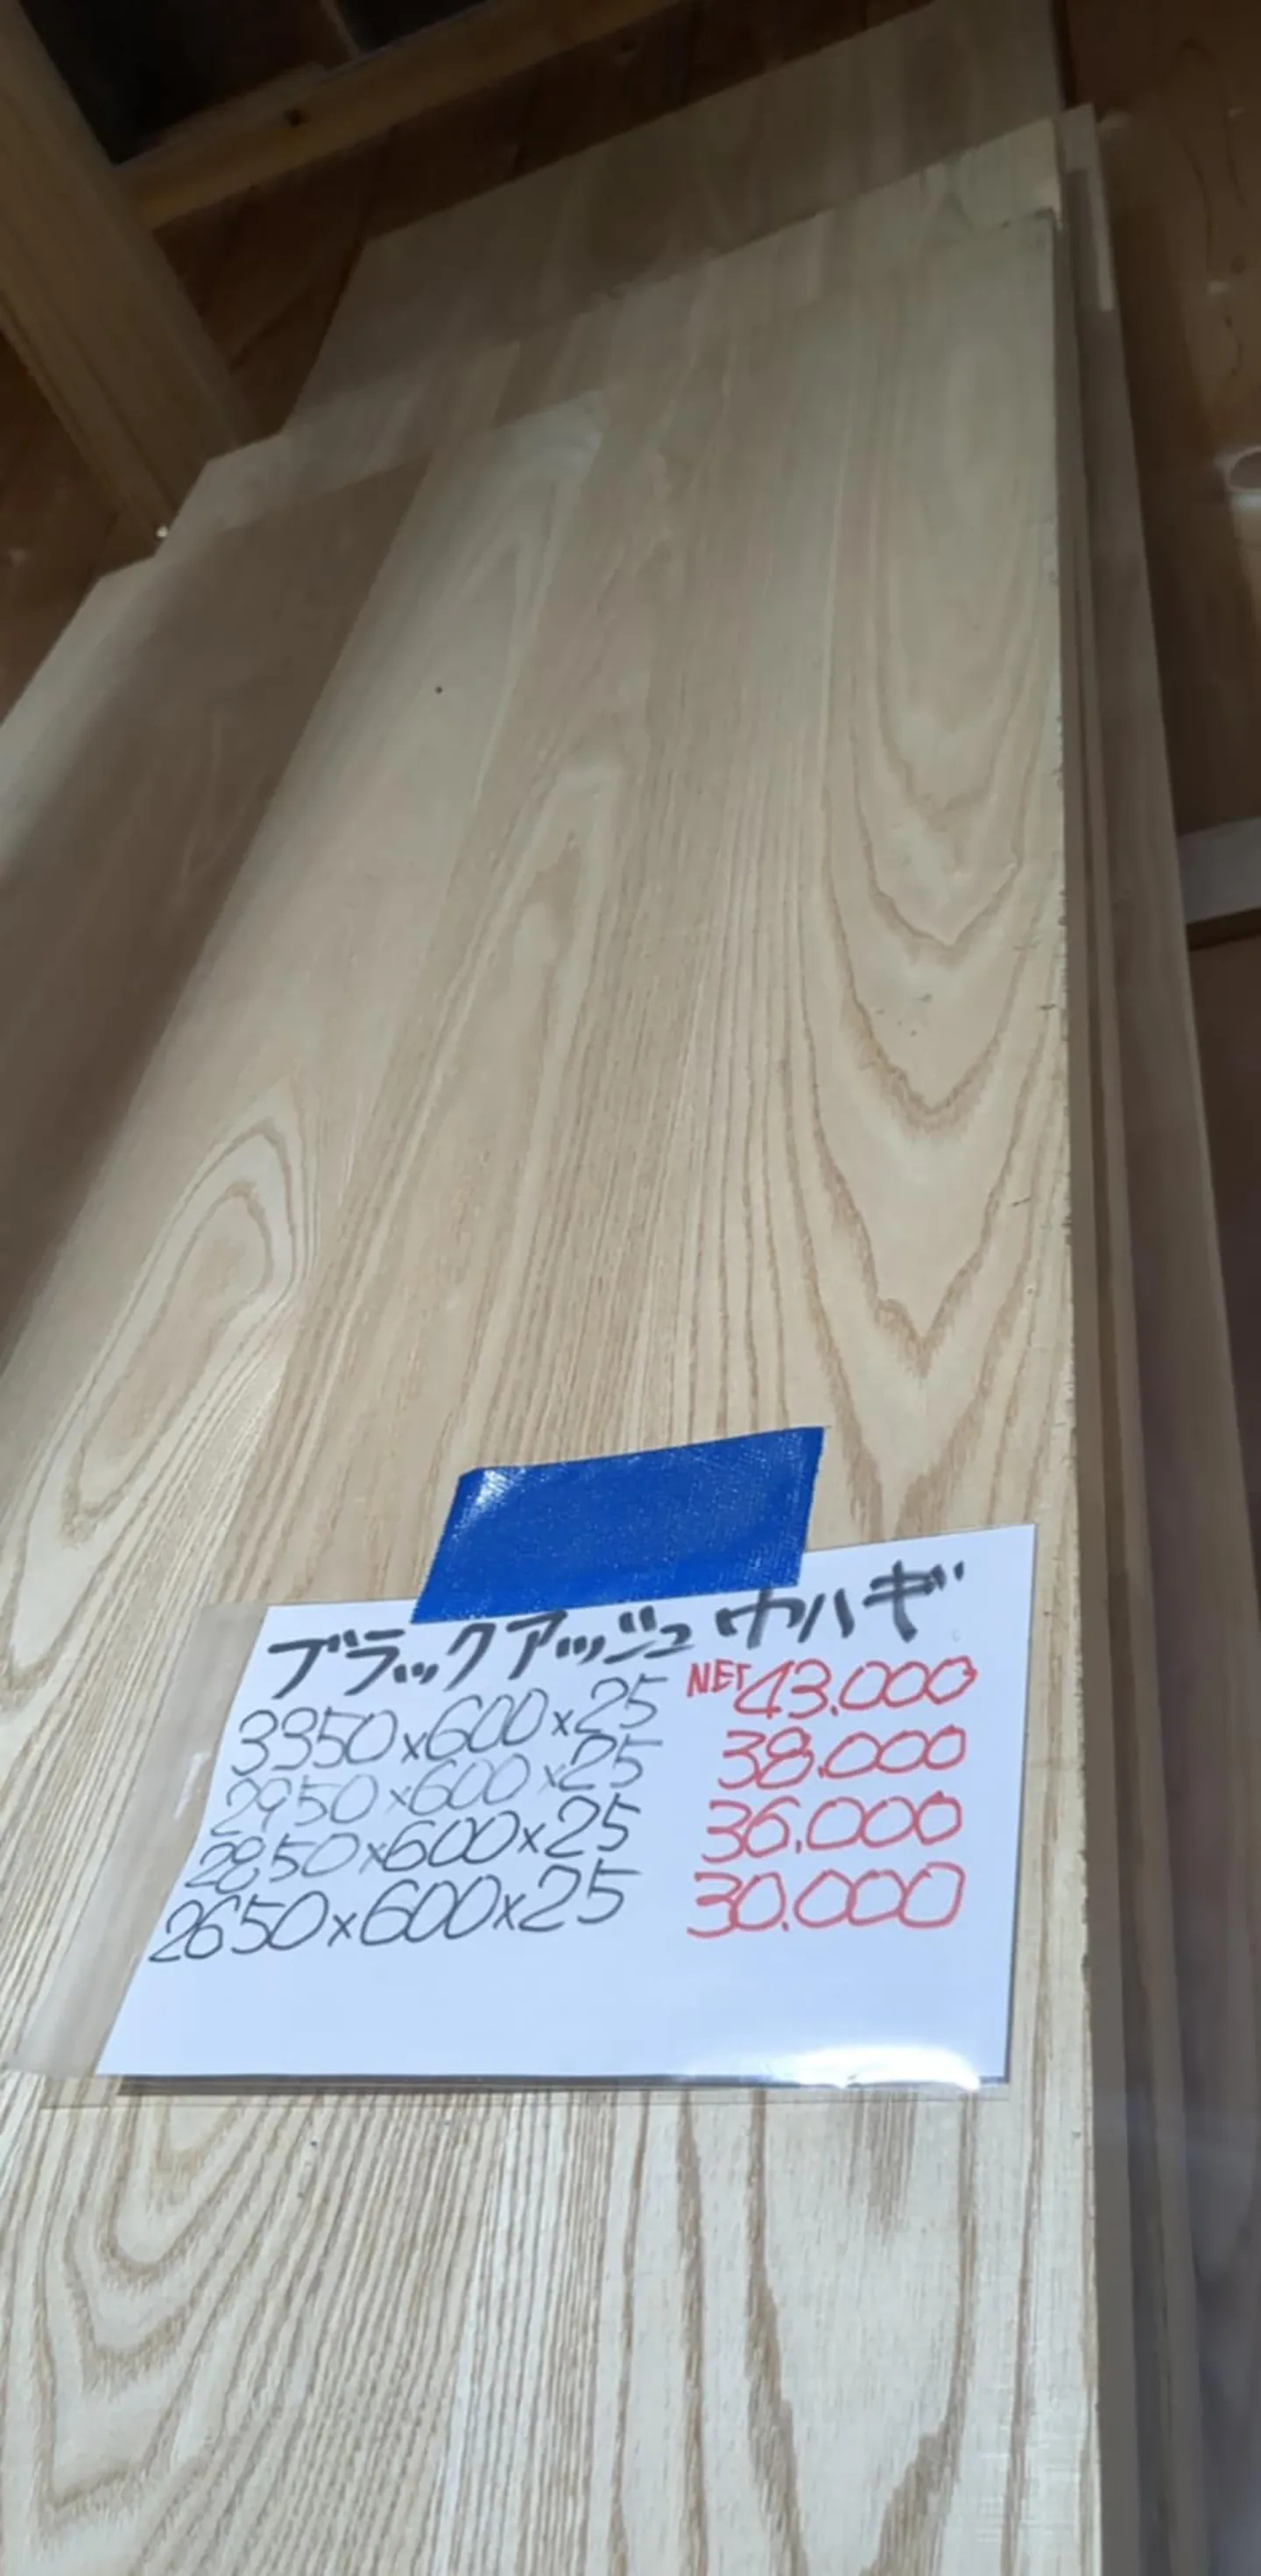 ブラックアッシュ巾ハギ
3350×600×25 NET43.000
2950×600×25 38.000
2850×600×25 36.000
2650×600×25 30.000